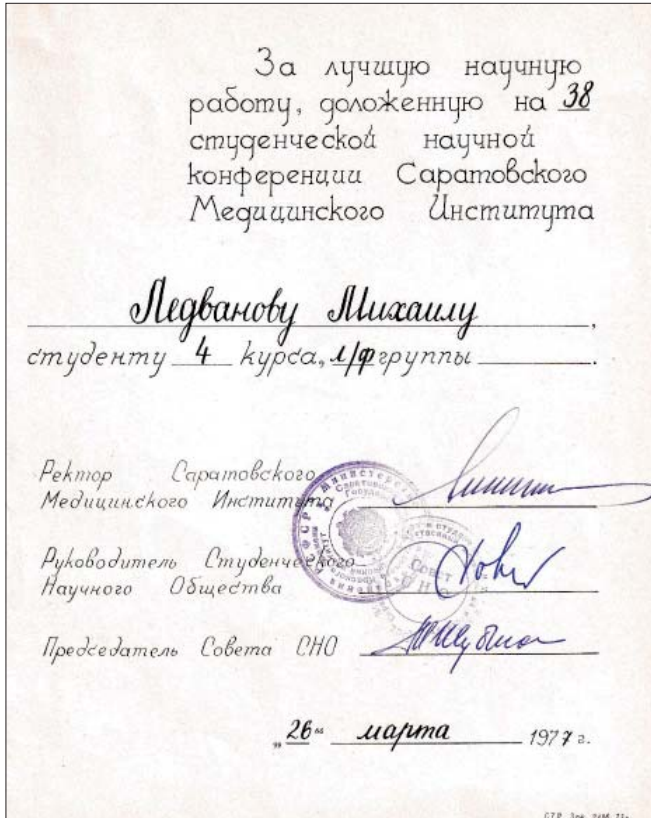 За лучшую научную
работу, доложенную на 38
студенческой научной
конференции Саратовского
Медицинского Института
Ледванову Михаилу,
студенту 4 курса, л/ф группы .
Ректор Саратовского
Медицинского Института
Руководитель Студенческого
Научного Общества
Председатель Совета СНО
„26“ марта 1977 г.